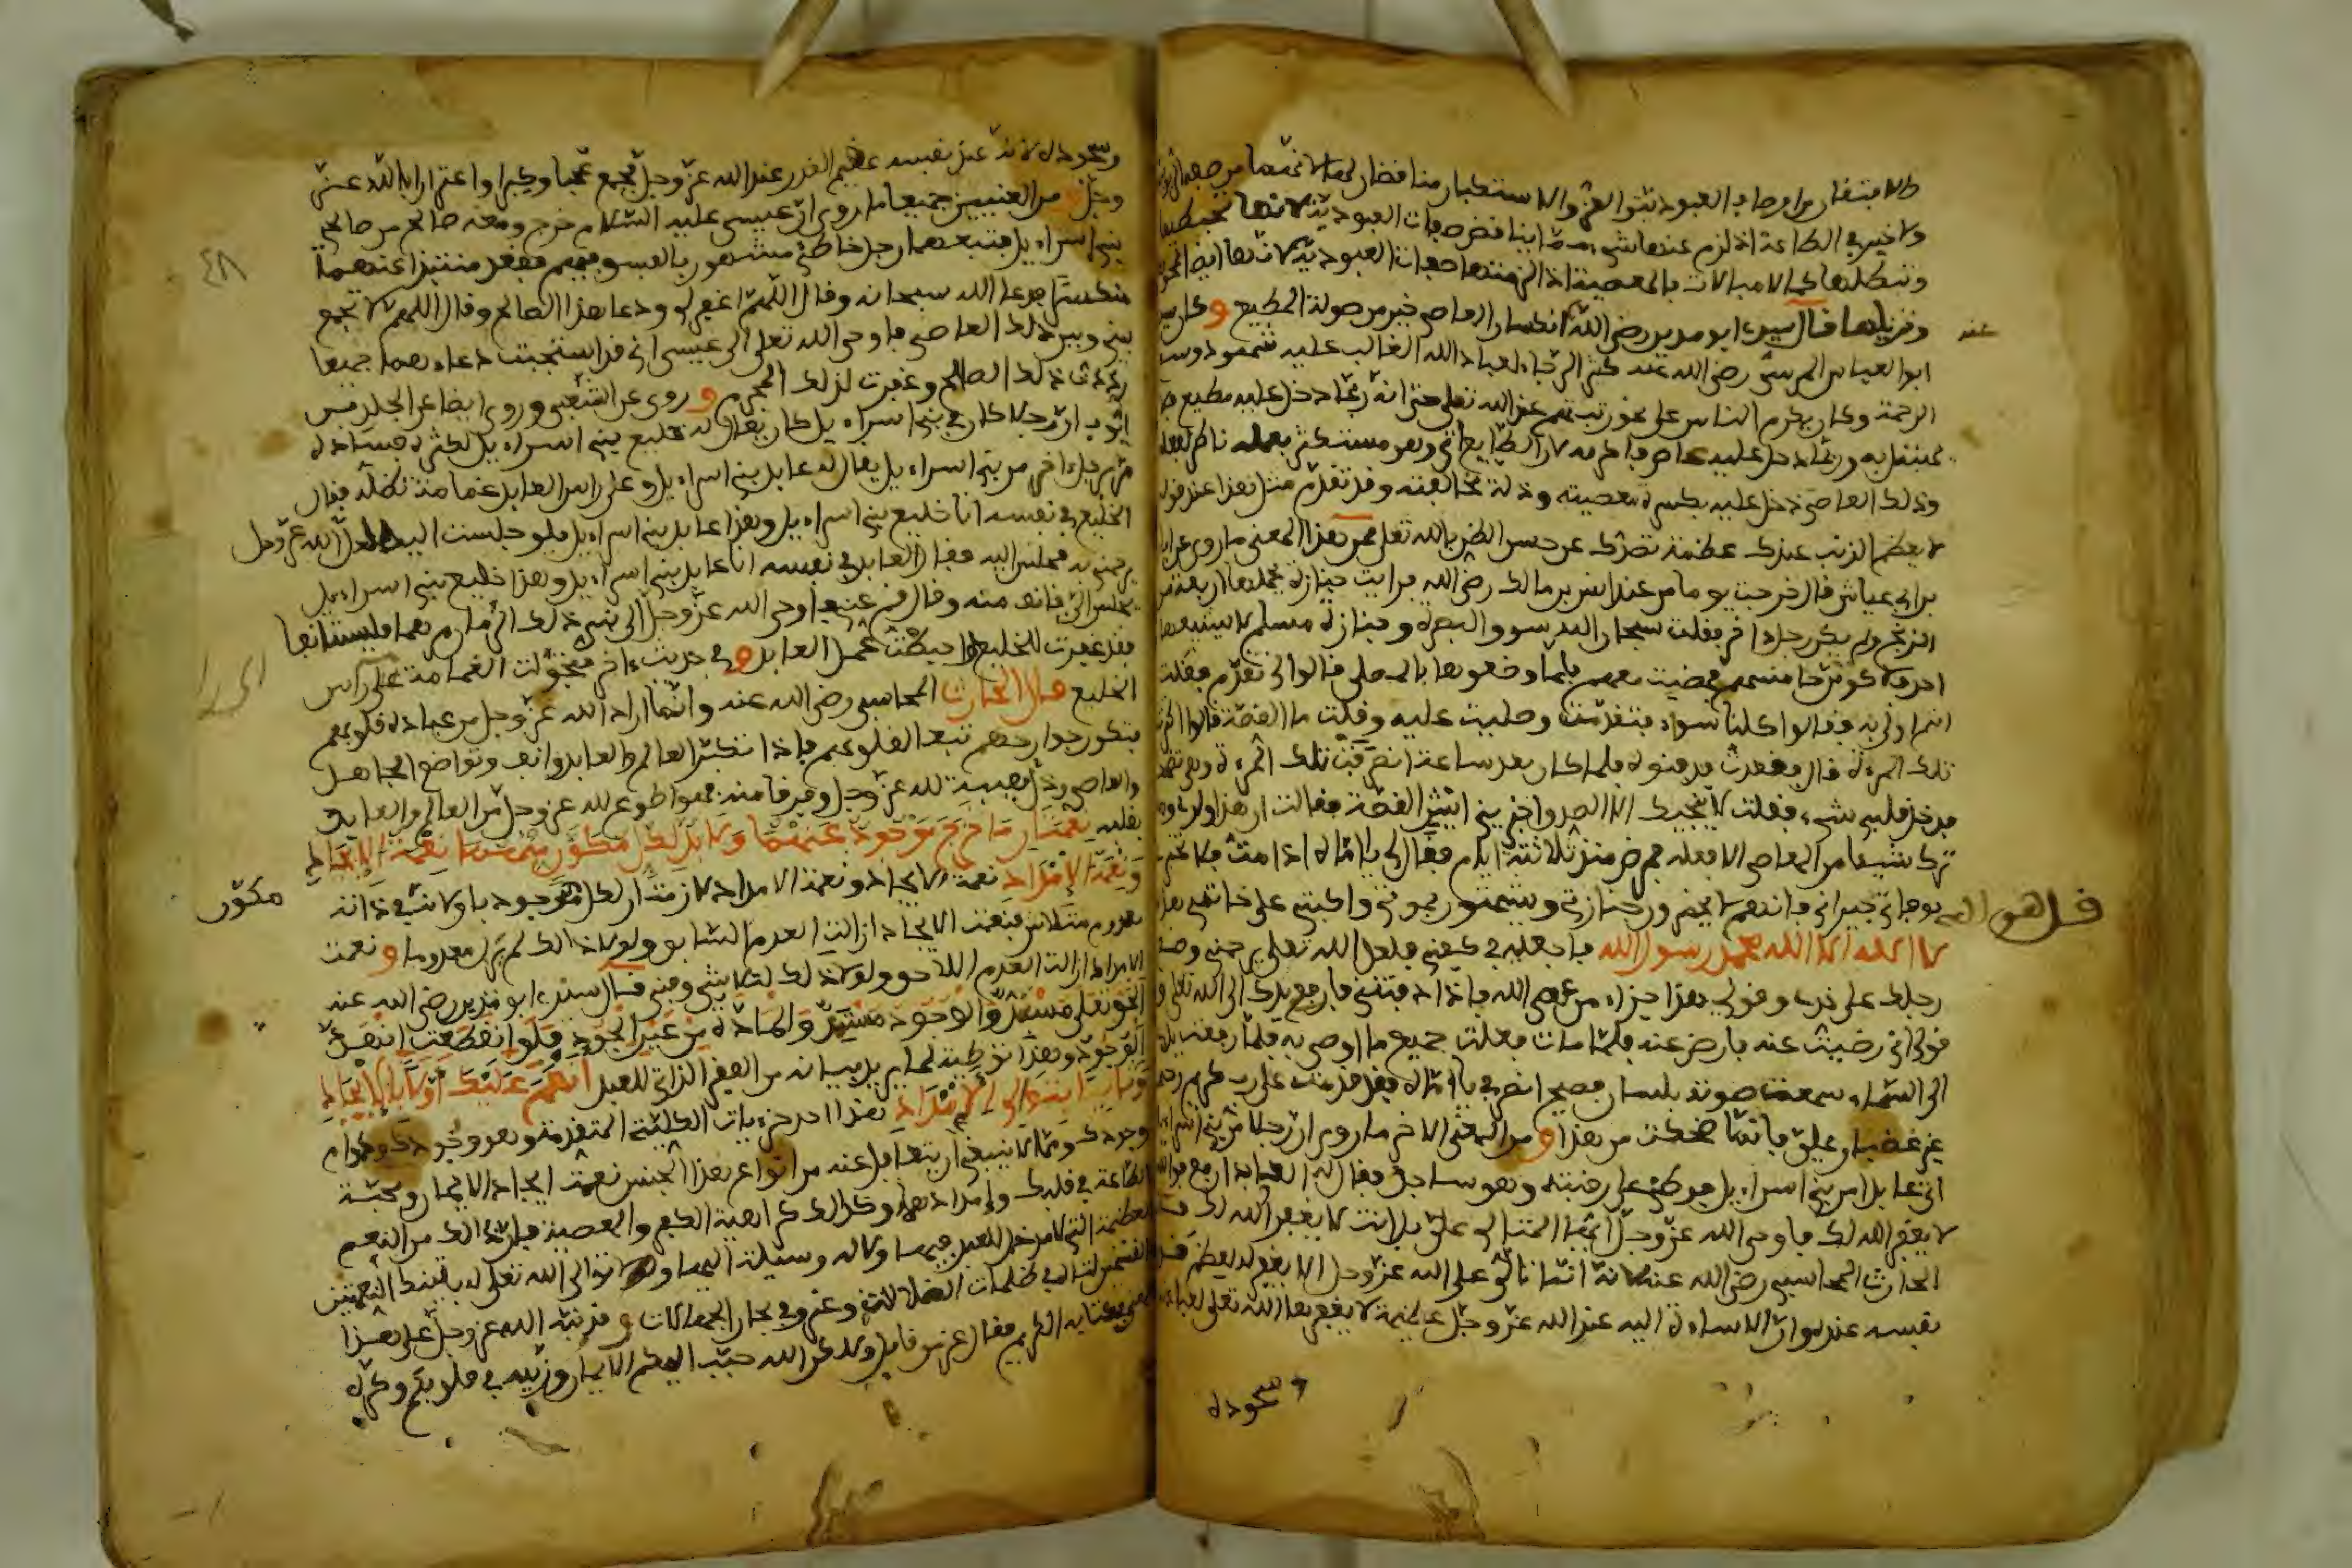 والافتقار من اوصاف العبودية والعز والاستكبار مناقضان لها لانهما من صفات الربوبية
ولا خير في الطاعة اذا لزم عنها شيء مما يناقض صفات العبودية لانها تحبطها
وتبطلها كما لا مبالات بالمعصية اذا لزمتها صفات العبودية لانها ايضا تمحوها
وتزيلها قال سيدي ابو مدين رضي الله عنه انكسار العاصي خير من صولة المطيع وكان سيدي
ابو العباس المرسي رضي الله عنه كثير الرجاء لعباد الله الغالب عليه شهود وسع
الرحمة وكان يكرم الناس على نحو رتبتهم عند الله تعلى حتى انه ربما دخل عليه مطيع فلا
يحتفل به وربما دخل عليه عاص فاكرمه لان الطايع اتى وهو مستكثر بعمله ناظر لفعله
وذلك العاصي دخل عليه بكسرة معصيته وذلة مخالفته وقد تقدم مثل هذا عند قوله
لا يعظم الذنب عندك عظمة تصدك عن حسن الظن بالله تعلى فمن هذا المعنى ما روي عن ابان
بن ابي عياش قال خرجت يوما من عند انس بن مالك رضي الله عنه فرايت جنازة يحملها اربعة من
الزنج ولم يكن رجل اخر فقلت سبحان الله سوق البصرة وجنازة مسلم لا يتبعها
احد فلاكونن خامسهم فمضيت معهم فلما وضعوها بالمصلى قالوا لي تقدم فقلت
انتم اولى به فقالوا كلنا سواء فتقدمت وصليت عليه وقلت ما القصة قالوا اكترتنا
تلك المرءة قال فقعدت فدفنوه فلما كان بعد ساعة انصرفت تلك المرءة وهي تضحك
فدخل قلبي شيء فقلت لا ينجيك الا الصدق اخبريني ايش القصة فقالت ان هذا ولدي وما
ترك شيئا من المعاصي الا فعله فمرض منذ ثلاثة ايام فقال لي يا اماه اذا مت فلا تخبري
بوفاتي جيراني فانهم لا يحضرون جنازتي وشمتوا بموتي واكتبي على خاتمي هذا
لا اله الا الله محمد رسول الله فاجعليه في كفني فلعل الله تعلى يرحمني وضعي
رجلك على خدي وقولي هذا جزاء من عصى الله فاذا دفنتني فارفع يدك الى الله تعلى و
قولي اني رضيت عنه فارض عنه فلما مات فعلت جميع ما اوصى به فلما رفعت يدي
الى السماء سمعت صوته بلسان فصيح انصرفي يا اماه فقد قدمت على رب كريم رحيم
غير غضبان علي فانما ضحكت من هذا ومن المعنى الاخر ما روي ان رجلا من بني اسراءيل
اتى عابدا من بني اسراءيل فوطئ على رقبته وهو ساجد فقال له العابد ارفع فوالله
لا يغفر الله لك فاوحى الله عز وجل ايها المتالي علي بل انت لا يغفر الله لك قال
الحارث المحاسبي رضي الله عنه لانه انما تالى على الله عز وجل الا يغفر له لعظم قدر
نفسه عنده وان الاساءة اليه عند الله عز وجل عظيمة لا يغفرها الله تعلى لعباده
وسجوده
عنه
قل هو الله
وسجوده لانه عند نفسه عظيم القدر عند الله عز وجل فجمع عجبا وكبرا واغترارا بالله عز
وجل ومن المعنيين جميعا ما روي ان عيسى عليه السلام خرج ومعه صالح من صالحي
بني اسراءيل فتبعهما رجل خاطئ مشهور بالفسق فيهم فقعد منتبذا عنهما
منكسرا فدعا الله سبحانه وقال اللهم اغفر لي ودعا هذا الصالح وقال اللهم لا تجمع
بيني وبين ذلك العاصي فاوحى الله تعلى الى عيسى اني قد استجبت دعاءهما جميعا
رددت ذلك الصالح وغفرت لذلك المجرم وروي عن الشعبي وروي ايضا عن الخلد بن
ايوب ان رجلا كان في بني اسراءيل كان يقال له خليع بني اسراءيل لكثرة فساده
مر برجل اخر من بني اسراءيل يقال له عابد بني اسراءيل وعلى راس العابد غمامة تظله فقال
الخليع في نفسه انا خليع بني اسراءيل وهذا عابد بني اسراءيل فلو جلست اليه لعل الله عز وجل
يرحمني به فجلس اليه فقال العابد في نفسه انا عابد بني اسراءيل وهذا خليع بني اسراءيل
يجلس الي فانف منه وقال قم عني فاوحى الله عز وجل الى نبي ذلك الزمان مرهما فليستانفا
فقد غفرت للخليع واحبطت عمل العابد وفي حديث اخر فتحولت الغمامة على راس
الخليع قال الحارث المحاسبي رضي الله عنه وانما اراد الله عز وجل من عباده قلوبهم
فتكون جوارحهم تبعا لقلوبهم فاذا تكبر العالم والعابد وانف وتواضع الجاهل
والعاصي وذل هيبة لله عز وجل وفرقا منه فهو اطوع لله عز وجل من العالم والعابد
بقلبه نعمتان ما خرج موجود عنهما ولا بد لكل مكون منهما نعمة الايجاد
ونعمة الامداد نعمة الايجاد ونعمة الامداد لازمتان لكل موجود باولا شيء ذاته
معدوم متلاش فنعمت الايجاد ازالت العدم السابق ولولا ذلك لم يزل معدوما ونعمت
الامداد ازالت العدم اللاحق ولولا ذلك لتلاشى وفني قال سيدي ابو مدين رضي الله عنه
الحق تعلى مستمد والوجود مستمد والمادة من عين الجود فلو انقطعت انهد
الوجود وهذا توطئة لما يريد بيانه من الفقر الذاتي للعبد انعم عليك اولا بالايجاد
وثانيا بتوالي الامداد هذا احد جزءيات الكلية المتقدمة وهو وجودك ودوام
وجودك ومما لا ينبغي ان يتغافل عنه من انواع هذا الجنس نعمت ايجاد الايمان ومحبة
الطاعة في قلبك وامداد هما وكذلك كراهية الكفر والمعصية فان ذلك من النعم
العظيمة التي لا مدخل للعبد فيها ولا له وسيلة اليها ولولا توالي الله تعلى له بهاتيك النعمتين
لتخبط في ظلمات الضلالة وغرق في بحار الجهالات وقد نبه الله عز وجل على هذا
في كتابه الكريم فقال عز من قايل ولكن الله حبب اليكم الايمان وزينه في قلوبكم وكره
٤٨
مكوّن